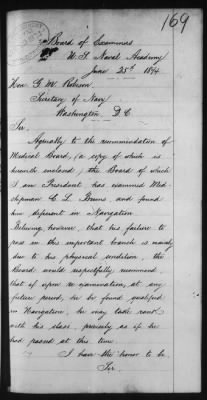 169
Board of Examiners
U. S. Naval Academy
June 25th 1874
Hon. G. M. Robeson,
Secretary of Navy
Washington, D.C.
Sir,
Agreeably to the recommendation of
Medical Board, (a copy of which is
herewith enclosed) the Board of which
I am President has examined Mid-
shipman C. L. Bruns, and found
him deficient in Navigation
Believing, however, that his failure to
pass in this important branch is mainly
due to his physical condition, the
Board would respectfully recommend
that if upon re-examination, at any
future period, he be found qualified
in Navigation, he may take rank
with his class, precisely as if he
had passed at this time.
I have the honor to be,
Sir,